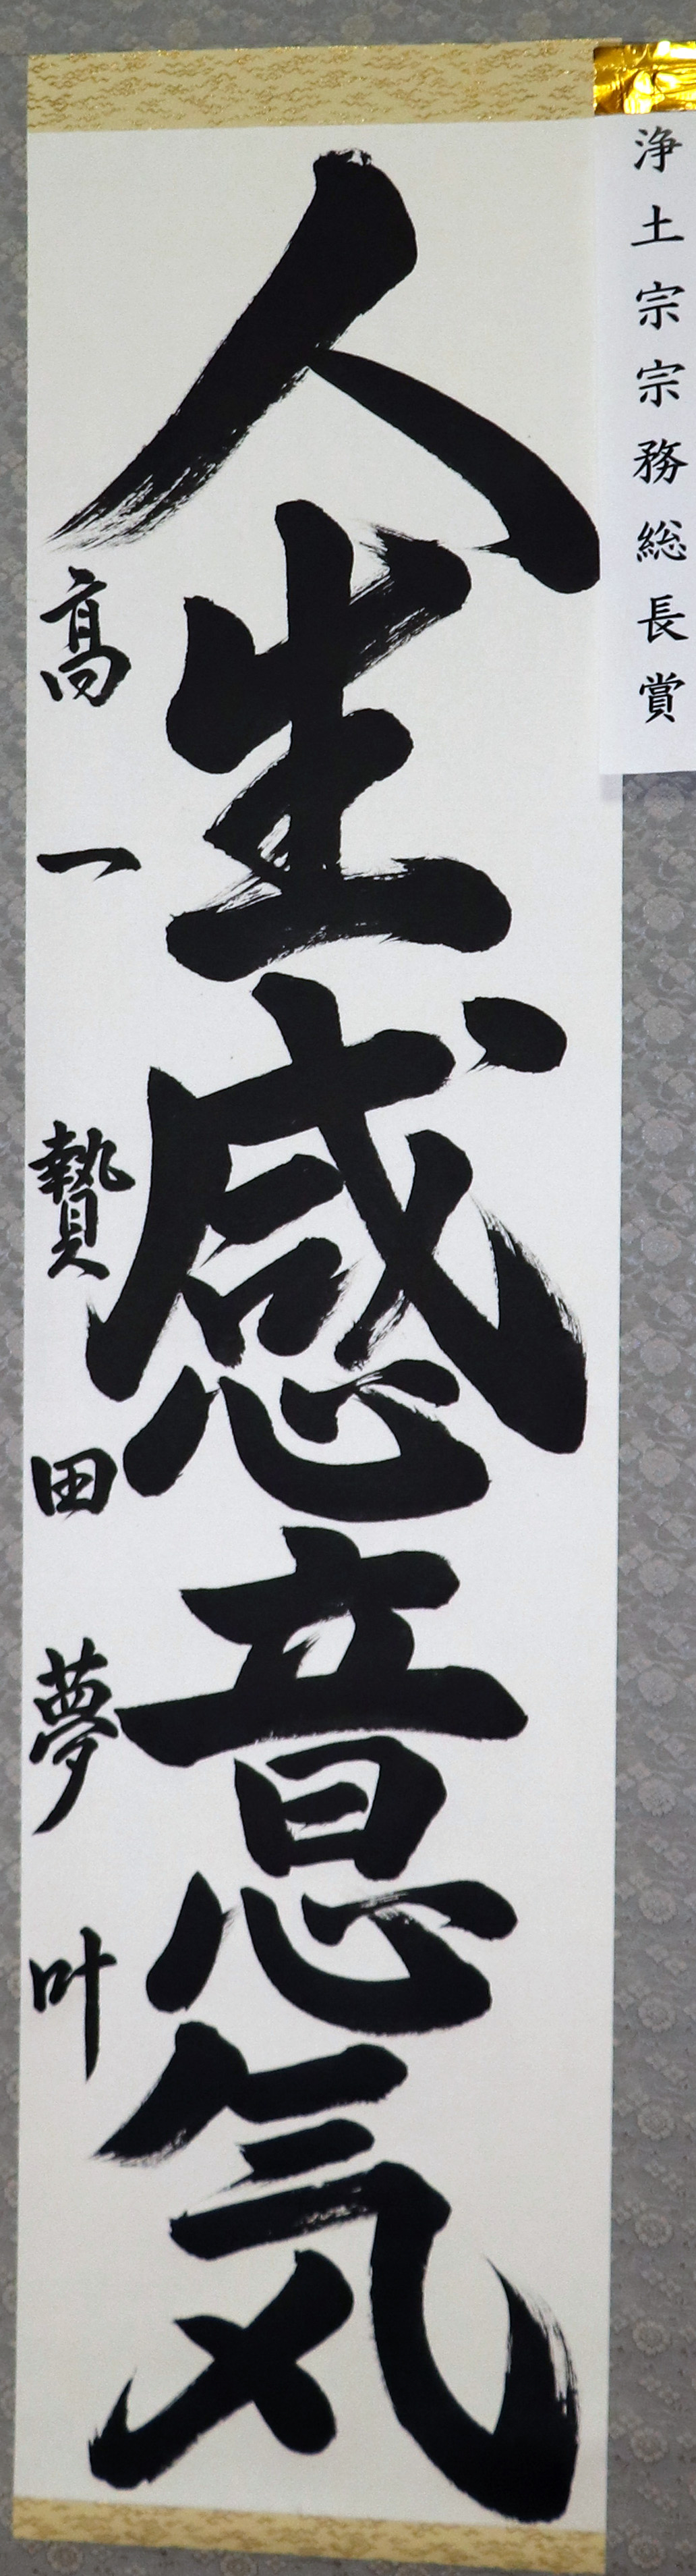 浄土宗宗務総長賞
人生感意気
高一 贄田夢叶